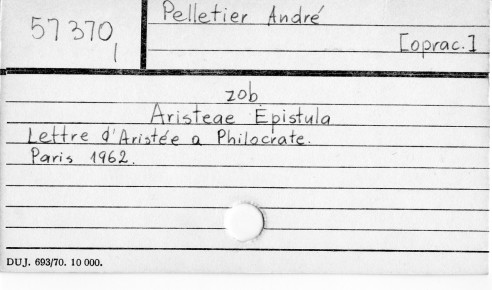 57 370
I
Pelletier André
[oprac.]
zob
Aristeae Epistula
Lettre d'Aristée a Philocrate.
Paris 1962.
DUJ. 693/70. 10 000.